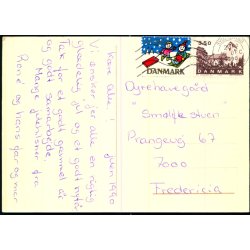 Kære alle! Julen 1990
Vi ønsker jer alle en rigtig
glædelig jul og et godt nytår
Tak for et godt gammelt år
og godt samarbejde.
Mange julehilsner fra
René og hans far og mor
DANMARK
DANMARK
Dyrehavegård
"Smedjestuen"
Prangevej 67
7000
Fredericia